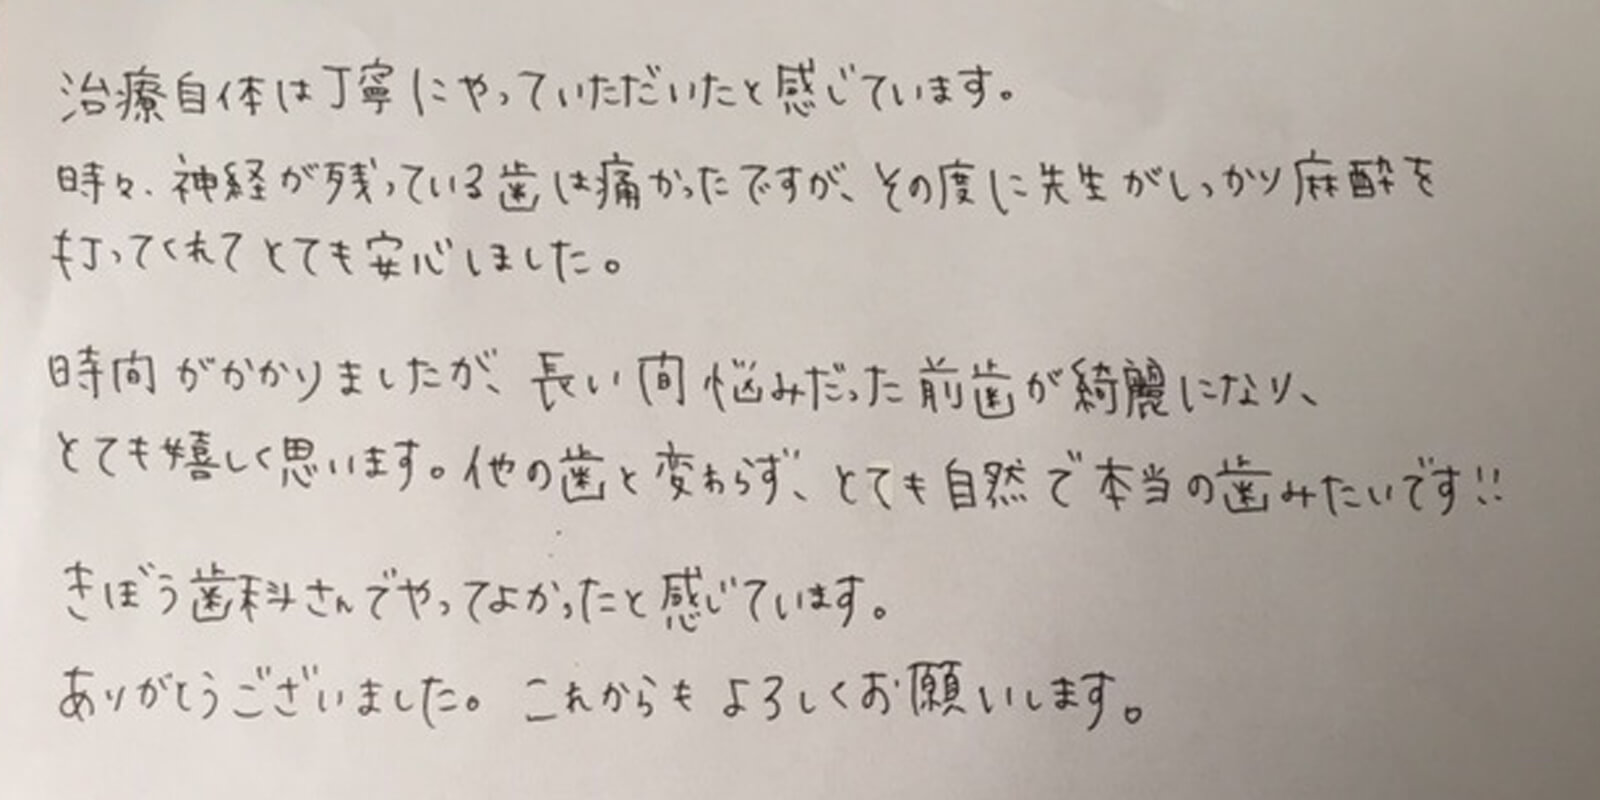 治療自体は丁寧にやっていただいたと感じています。
時々、神経が残っている歯は痛かったですが、その度に先生がしっかり麻酔を
打ってくれてとても安心しました。
時間がかかりましたが、長い間悩みだった前歯が綺麗になり、
とても嬉しく思います。他の歯と変わらず、とても自然で本当の歯みたいです!!
きぼう歯科さんでやってよかったと感じています。
ありがとうございました。これからもよろしくお願いします。